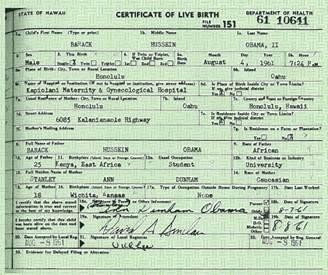 STATE OF HAWAII CERTIFICATE OF LIVE BIRTH DEPARTMENT OF HEALTH
FILE NUMBER 151 61 10641
1a. Child's First Name (Type or print) 1b. Middle Name 1c. Last Name
BARACK HUSSEIN OBAMA, II
2. Sex 3. This Birth 4. If Twin or Triplet, Was Child Born 5a. Birth Date Month Day Year 5b. Hour
Male Single Twin Triplet August 4, 1961 7:24 P.M.
6a. Place of Birth: City, Town or Rural Location 6b. Island
Honolulu Oahu
6c. Name of Hospital or Institution (If not in hospital or institution, give street address) 6d. Is Place of Birth Inside City or Town Limits?
Kapiolani Maternity & Gynecological Hospital If no, give judicial district
7a. Usual Residence of Mother: City, Town or Rural Location 7b. Island 7c. County and State or Foreign Country
Honolulu Oahu Honolulu, Hawaii
7d. Street Address 7e. Is Residence Inside City or Town Limits?
6085 Kalanianaole Highway If no, give judicial district
7f. Mother's Mailing Address 7g. Is Residence on a Farm or Plantation?
8. Full Name of Father 9. Race of Father
BARACK HUSSEIN OBAMA African
10. Age of Father 11. Birthplace 12a. Usual Occupation 12b. Kind of Business or Industry
25 Kenya, East Africa Student University
13. Full Maiden Name of Mother 14. Race of Mother
STANLEY ANN DUNHAM Caucasian
15. Age of Mother 16. Birthplace 17a. Type of Occupation Outside Home During Pregnancy 17b. Date Last Worked
18 Wichita, Kansas None
I certify that the above stated information is true and correct to the best of my knowledge.
Dunham Obama 8-7-61
I hereby certify that this child was born alive on the date and hour stated above.
19a. Signature of Attendant
8-8-61
20. Date Accepted by Local Reg. 21. Signature of Local Registrar 22. Date Accepted by Reg. General
AUG -8 1961 AUG -8 1961
23. Evidence for Delayed Filing or Alteration